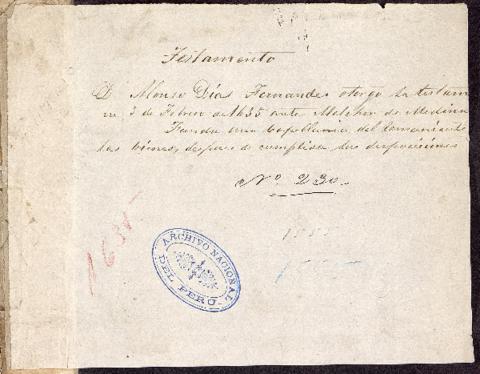 Testamento
D. Alonso Días Fernandes otorgó su testam
en 3 de Febrero de 1635 ante Melchor de Medina
Funda una Capellania del remaniente
las bienes, despues de cumplidas sus disposiciones
Nº 230.
1635
ARCHIVO NACIONAL
DEL PERÚ